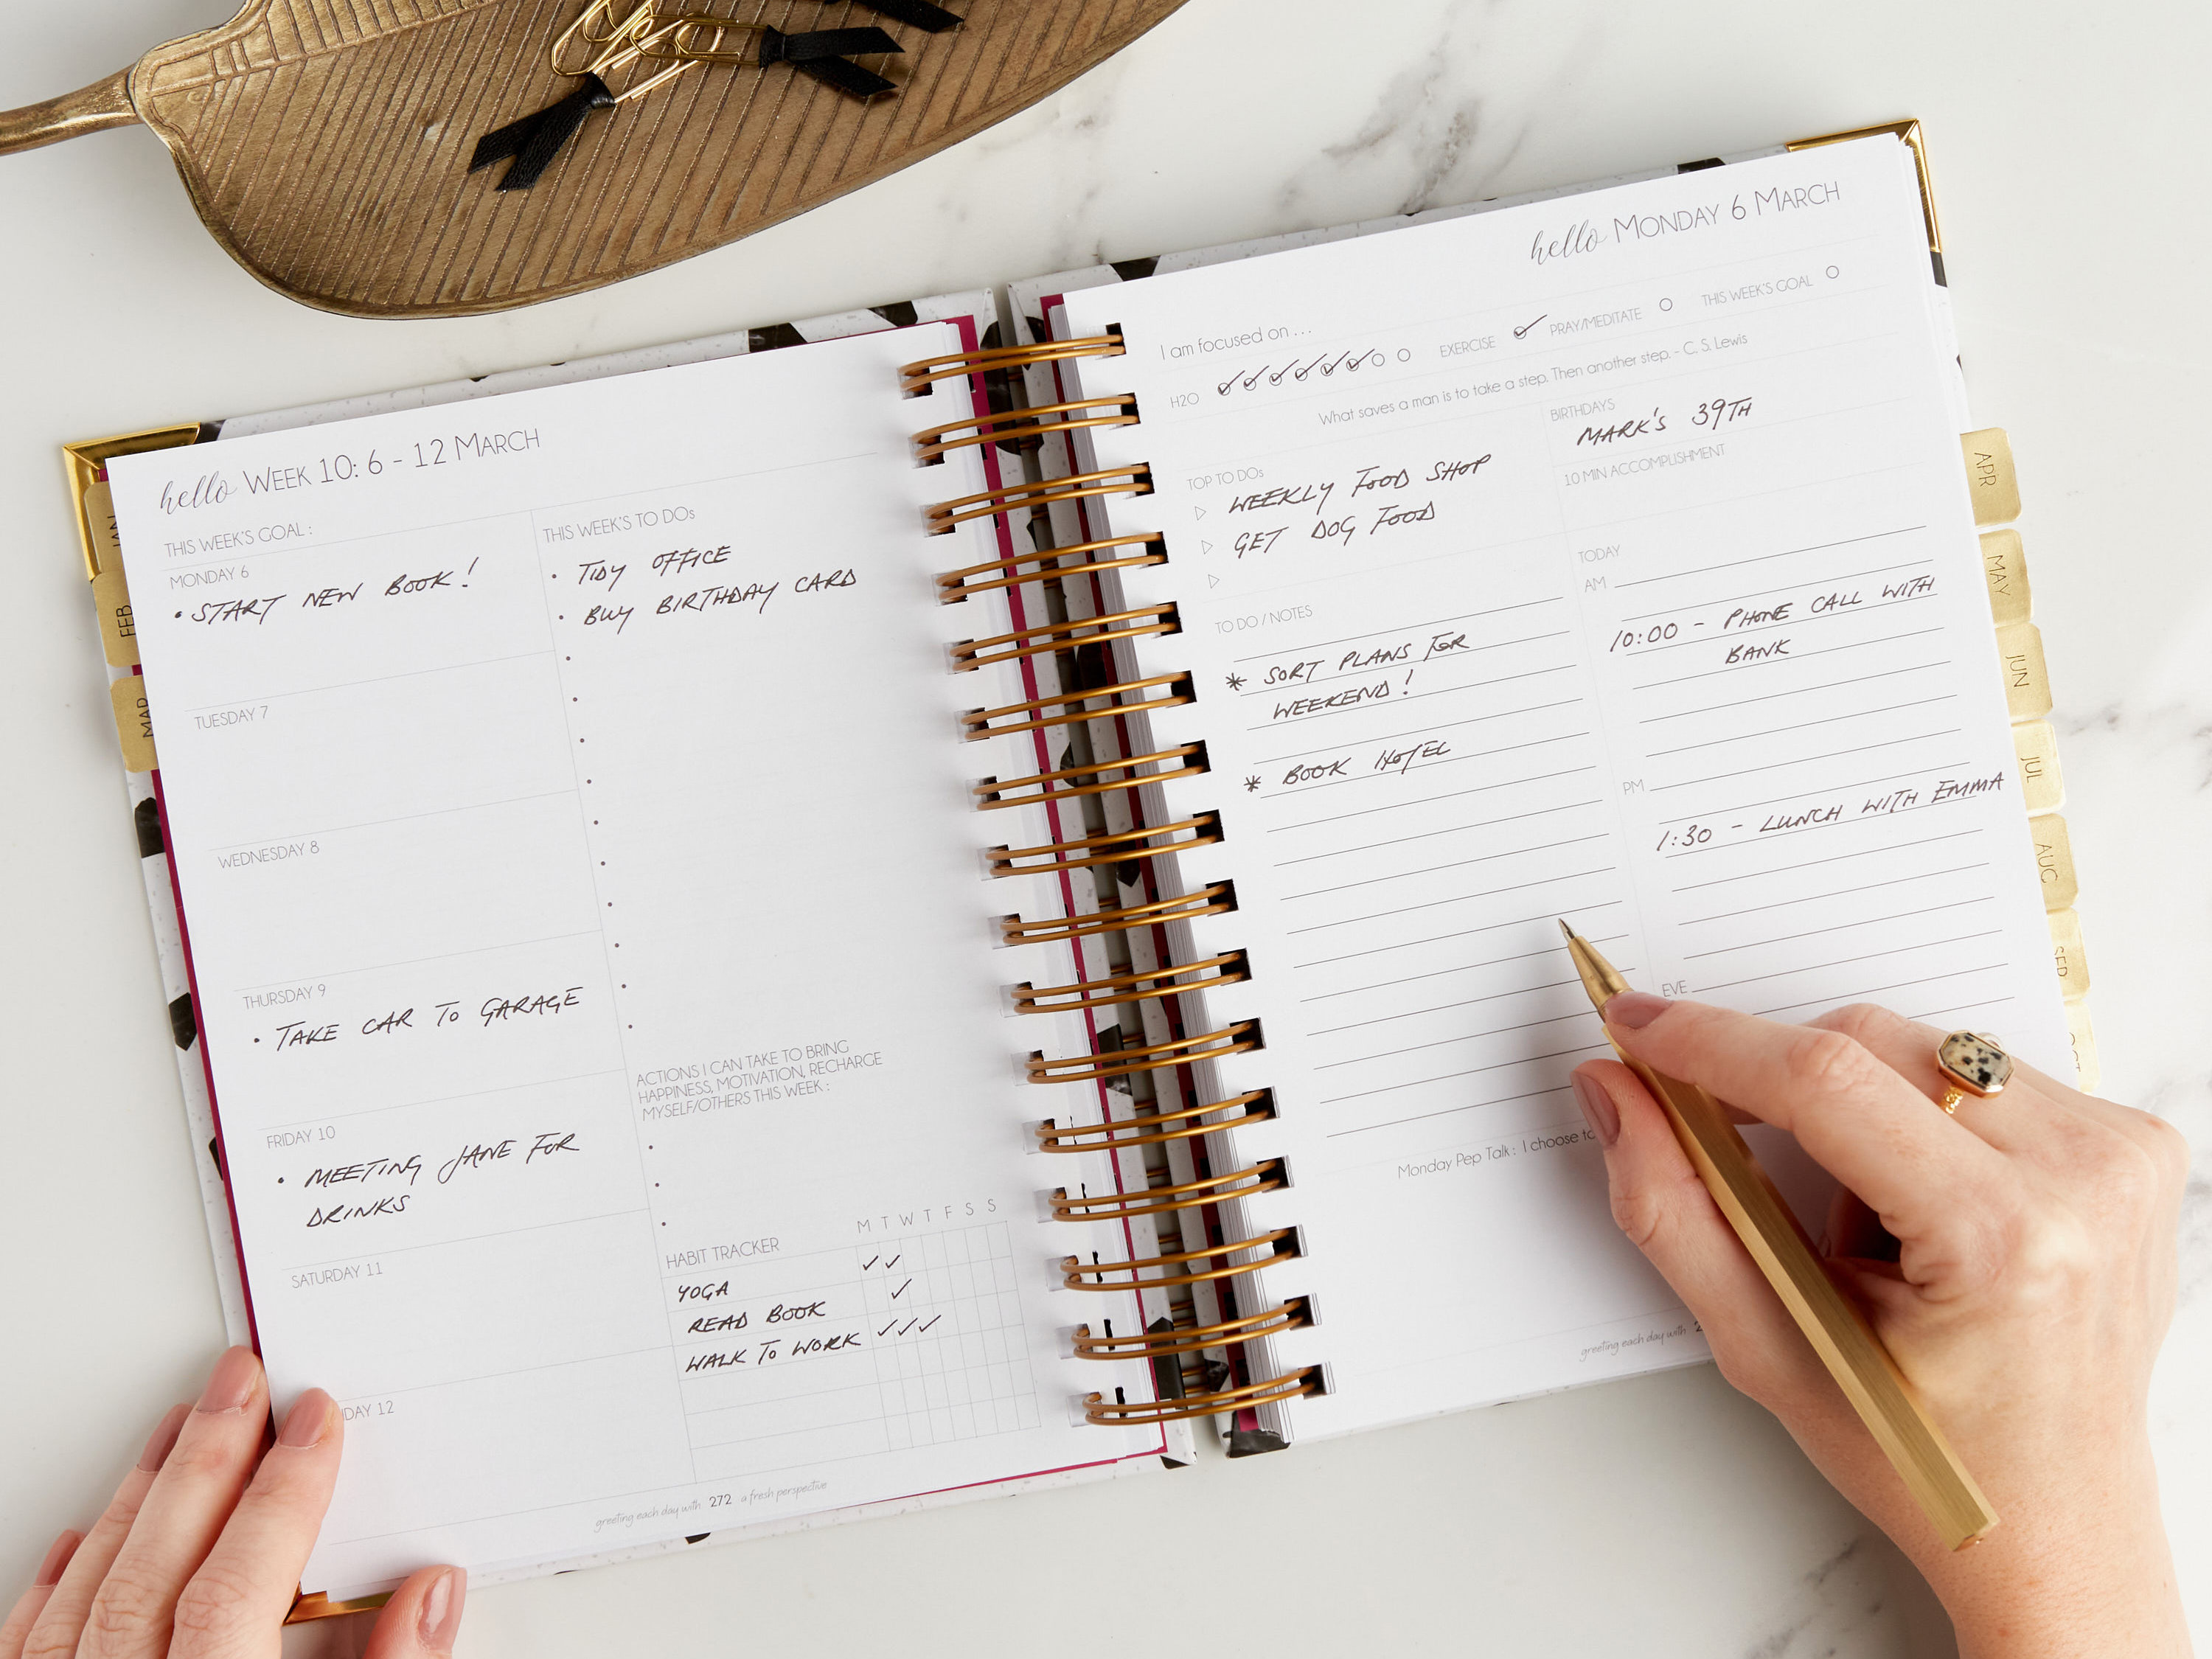 hello WEEK 10: 6 - 12 MARCH
THIS WEEK'S GOAL :
MONDAY 6
• START NEW BOOK!
TUESDAY 7
WEDNESDAY 8
THURSDAY 9
• TAKE CAR TO GARAGE
FRIDAY 10
• MEETING JANE FOR
DRINKS
SATURDAY 11
12
THIS WEEK'S TO DOs
• TIDY OFFICE
• BUY BIRTHDAY CARD
ACTIONS I CAN TAKE TO BRING
HAPPINESS, MOTIVATION, RECHARGE
MYSELF/OTHERS THIS WEEK :
M T W T F S S
HABIT TRACKER
YOGA ✓✓
READ BOOK ✓
WALK TO WORK ✓✓✓
greeting each day with 272 a fresh perspective
JAN
FEB
MAR
hello MONDAY 6 MARCH
I am focused on ...
H2O EXERCISE PRAY/MEDITATE THIS WEEK'S GOAL
What saves a man is to take a step. Then another step. - C. S. Lewis
TOP TO DOs
WEEKLY FOOD SHOP
GET DOG FOOD
BIRTHDAYS
MARK'S 39TH
10 MIN ACCOMPLISHMENT
TO DO / NOTES
* SORT PLANS FOR
WEEKEND!
* BOOK HOTEL
TODAY
AM
10:00 - PHONE CALL WITH
BANK
PM
1:30 - LUNCH WITH EMMA
EVE
Monday Pep Talk : I choose to
greeting each day with
APR
MAY
JUN
JUL
AUG
SEP
OCT